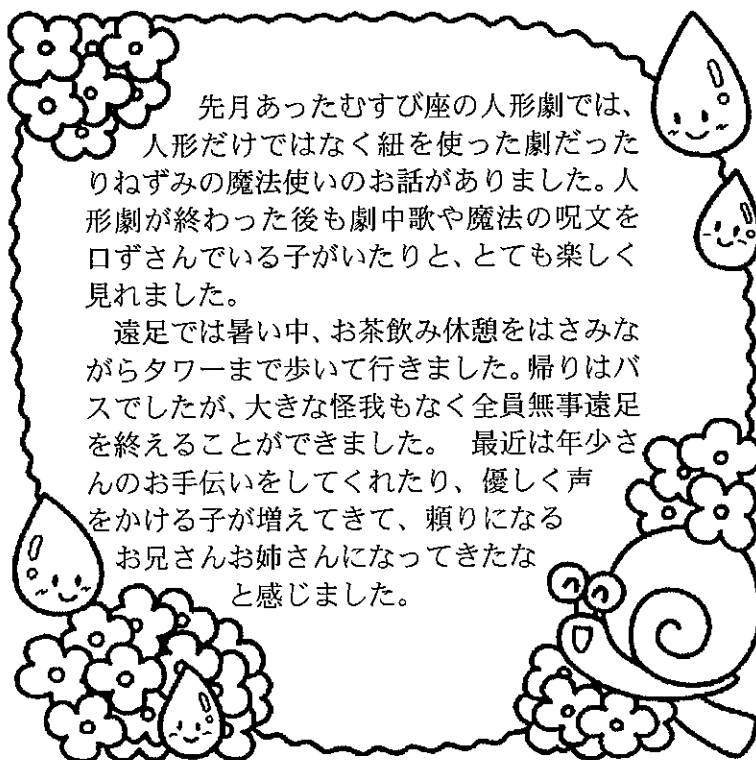 先月あったむすび座の人形劇では、
人形だけではなく紐を使った劇だった
りねずみの魔法使いのお話がありました。人
形劇が終わった後も劇中歌や魔法の呪文を
口ずさんでいる子がいたりと、とても楽しく
見れました。
遠足では暑い中、お茶飲み休憩をはさみな
がらタワーまで歩いて行きました。帰りはバ
スでしたが、大きな怪我もなく全員無事遠足
を終えることができました。　最近は年少さ
んのお手伝いをしてくれたり、優しく声
をかける子が増えてきて、頼りになる
お兄さんお姉さんになってきたな
と感じました。